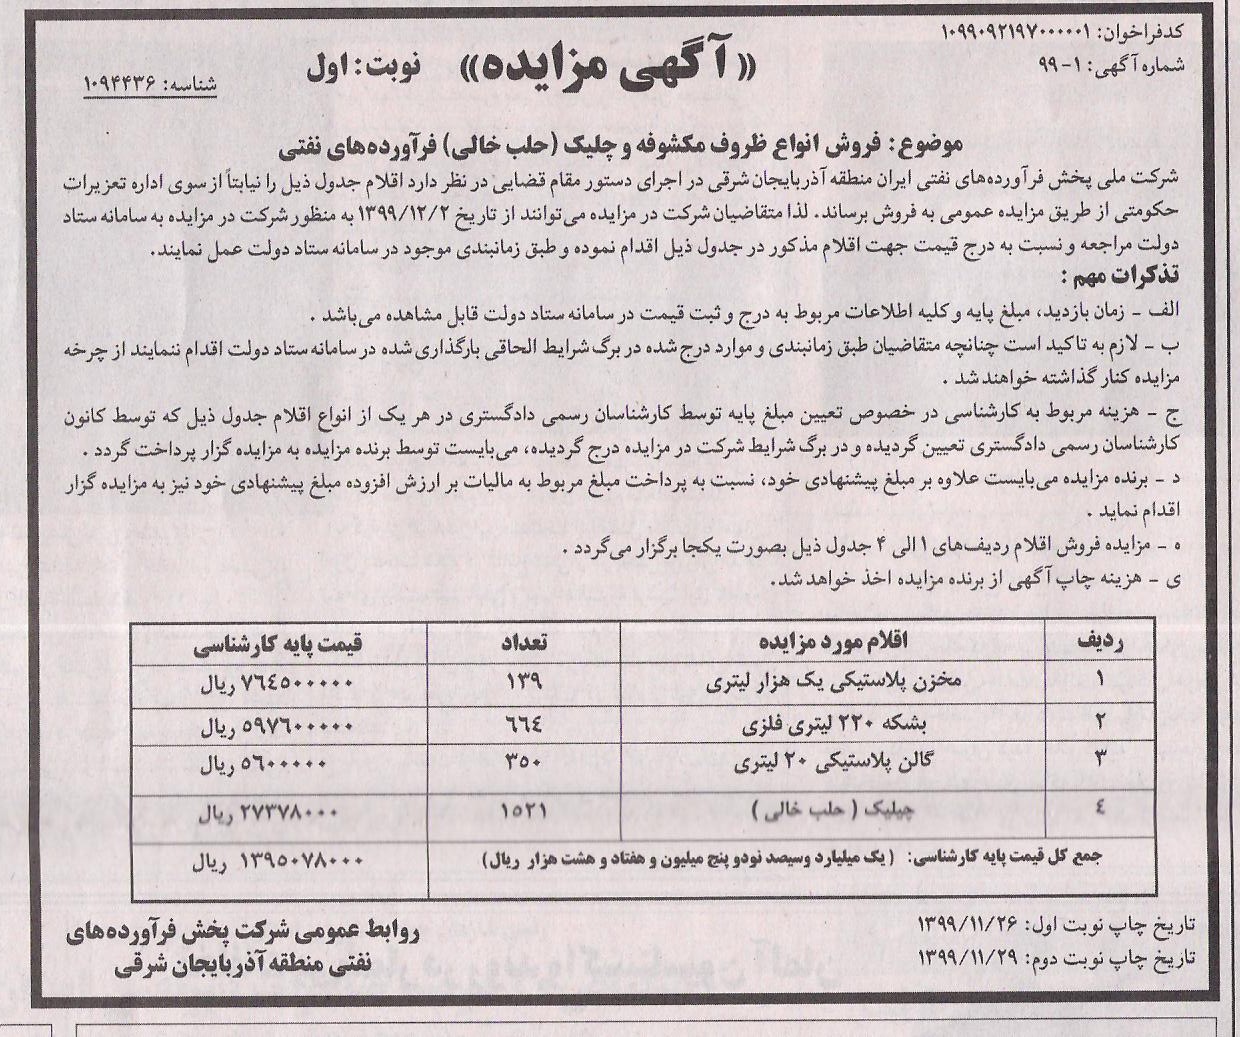 کدفراخوان: ۱۰۹۹۰۹۲۱۹۷۰۰۰۰۰۱
شماره آگهی: ۱-۹۹
«آگهی مزایده» نوبت: اول
شناسه: ۱۰۹۴۴۳۶
موضوع: فروش انواع ظروف مکشوفه و چلیک (حلب خالی) فرآورده‌های نفتی
شرکت ملی پخش فرآورده‌های نفتی ایران منطقه آذربایجان شرقی در اجرای دستور مقام قضایی در نظر دارد اقلام جدول ذیل را نیابتاً از سوی اداره تعزیرات
حکومتی از طریق مزایده عمومی به فروش برساند. لذا متقاضیان شرکت در مزایده می‌توانند از تاریخ ۱۳۹۹/۱۲/۲ به منظور شرکت در مزایده به سامانه ستاد
دولت مراجعه و نسبت به درج قیمت جهت اقلام مذکور در جدول ذیل اقدام نموده و طبق زمانبندی موجود در سامانه ستاد دولت عمل نمایند.
تذکرات مهم :
الف - زمان بازدید، مبلغ پایه و کلیه اطلاعات مربوط به درج و ثبت قیمت در سامانه ستاد دولت قابل مشاهده می‌باشد .
ب - لازم به تاکید است چنانچه متقاضیان طبق زمانبندی و موارد درج شده در برگ شرایط الحاقی بارگذاری شده در سامانه ستاد دولت اقدام ننمایند از چرخه
مزایده کنار گذاشته خواهند شد .
ج - هزینه مربوط به کارشناسی در خصوص تعیین مبلغ پایه توسط کارشناسان رسمی دادگستری در هر یک از انواع اقلام جدول ذیل که توسط کانون
کارشناسان رسمی دادگستری تعیین گردیده و در برگ شرایط شرکت در مزایده درج گردیده، می‌بایست توسط برنده مزایده به مزایده گزار پرداخت گردد .
د - برنده مزایده می‌بایست علاوه بر مبلغ پیشنهادی خود، نسبت به پرداخت مبلغ مربوط به مالیات بر ارزش افزوده مبلغ پیشنهادی خود نیز به مزایده گزار
اقدام نماید .
ه - مزایده فروش اقلام ردیف‌های ۱ الی ۴ جدول ذیل بصورت یکجا برگزار می‌گردد .
ی - هزینه چاپ آگهی از برنده مزایده اخذ خواهد شد.
ردیف اقلام مورد مزایده تعداد قیمت پایه کارشناسی
۱ مخزن پلاستیکی یک هزار لیتری ۱۳۹ ۷٦٤٥۰۰۰۰۰۰ ریال
۲ بشکه ۲۲۰ لیتری فلزی ٦٦٤ ٥۹۷٦۰۰۰۰۰۰ ریال
۳ گالن پلاستیکی ۲۰ لیتری ۳٥۰ ٥٦۰۰۰۰۰۰ ریال
٤ چیلیک ( حلب خالی ) ۱٥۲۱ ۲۷۳۷۸۰۰۰ ریال
جمع کل قیمت پایه کارشناسی: (یک میلیارد وسیصد نودو پنج میلیون و هفتاد و هشت هزار ریال) ۱۳۹٥۰۷۸۰۰۰ ریال
تاریخ چاپ نوبت اول: ۱۳۹۹/۱۱/۲۶
تاریخ چاپ نوبت دوم: ۱۳۹۹/۱۱/۲۹
روابط عمومی شرکت پخش فرآورده‌های
نفتی منطقه آذربایجان شرقی